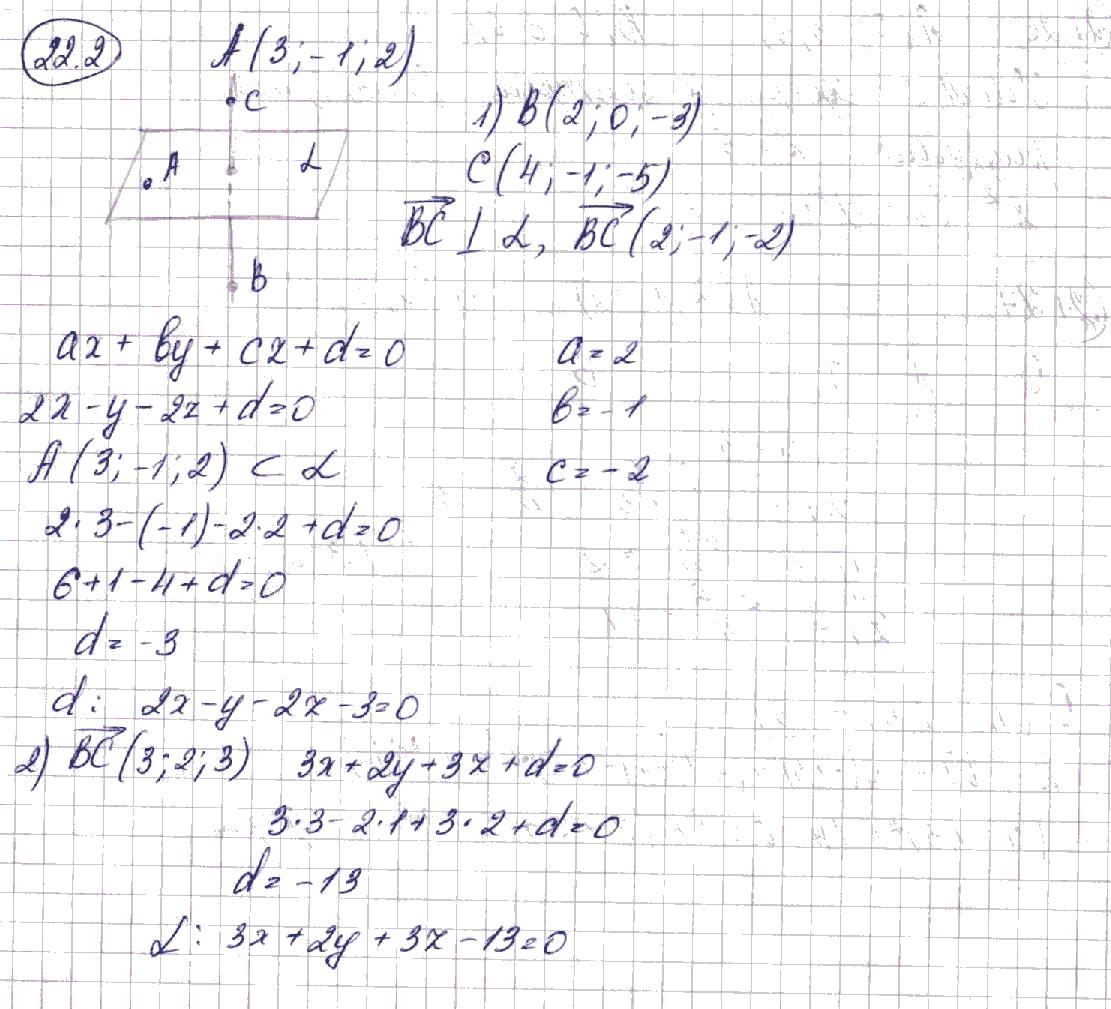 22.2
A(3; -1; 2)
C
A
α
B
1) B(2; 0; -3)
C(4; -1; -5)
BC ⊥ α, BC(2; -1; -2)
ax + by + cz + d = 0
a = 2
2x - y - 2z + d = 0
b = -1
A(3; -1; 2) ⊂ α
c = -2
2·3 - (-1) - 2·2 + d = 0
6 + 1 - 4 + d = 0
d = -3
d: 2x - y - 2z - 3 = 0
2) BC(3; 2; 3) 3x + 2y + 3z + d = 0
3·3 - 2·1 + 3·2 + d = 0
d = -13
α: 3x + 2y + 3z - 13 = 0